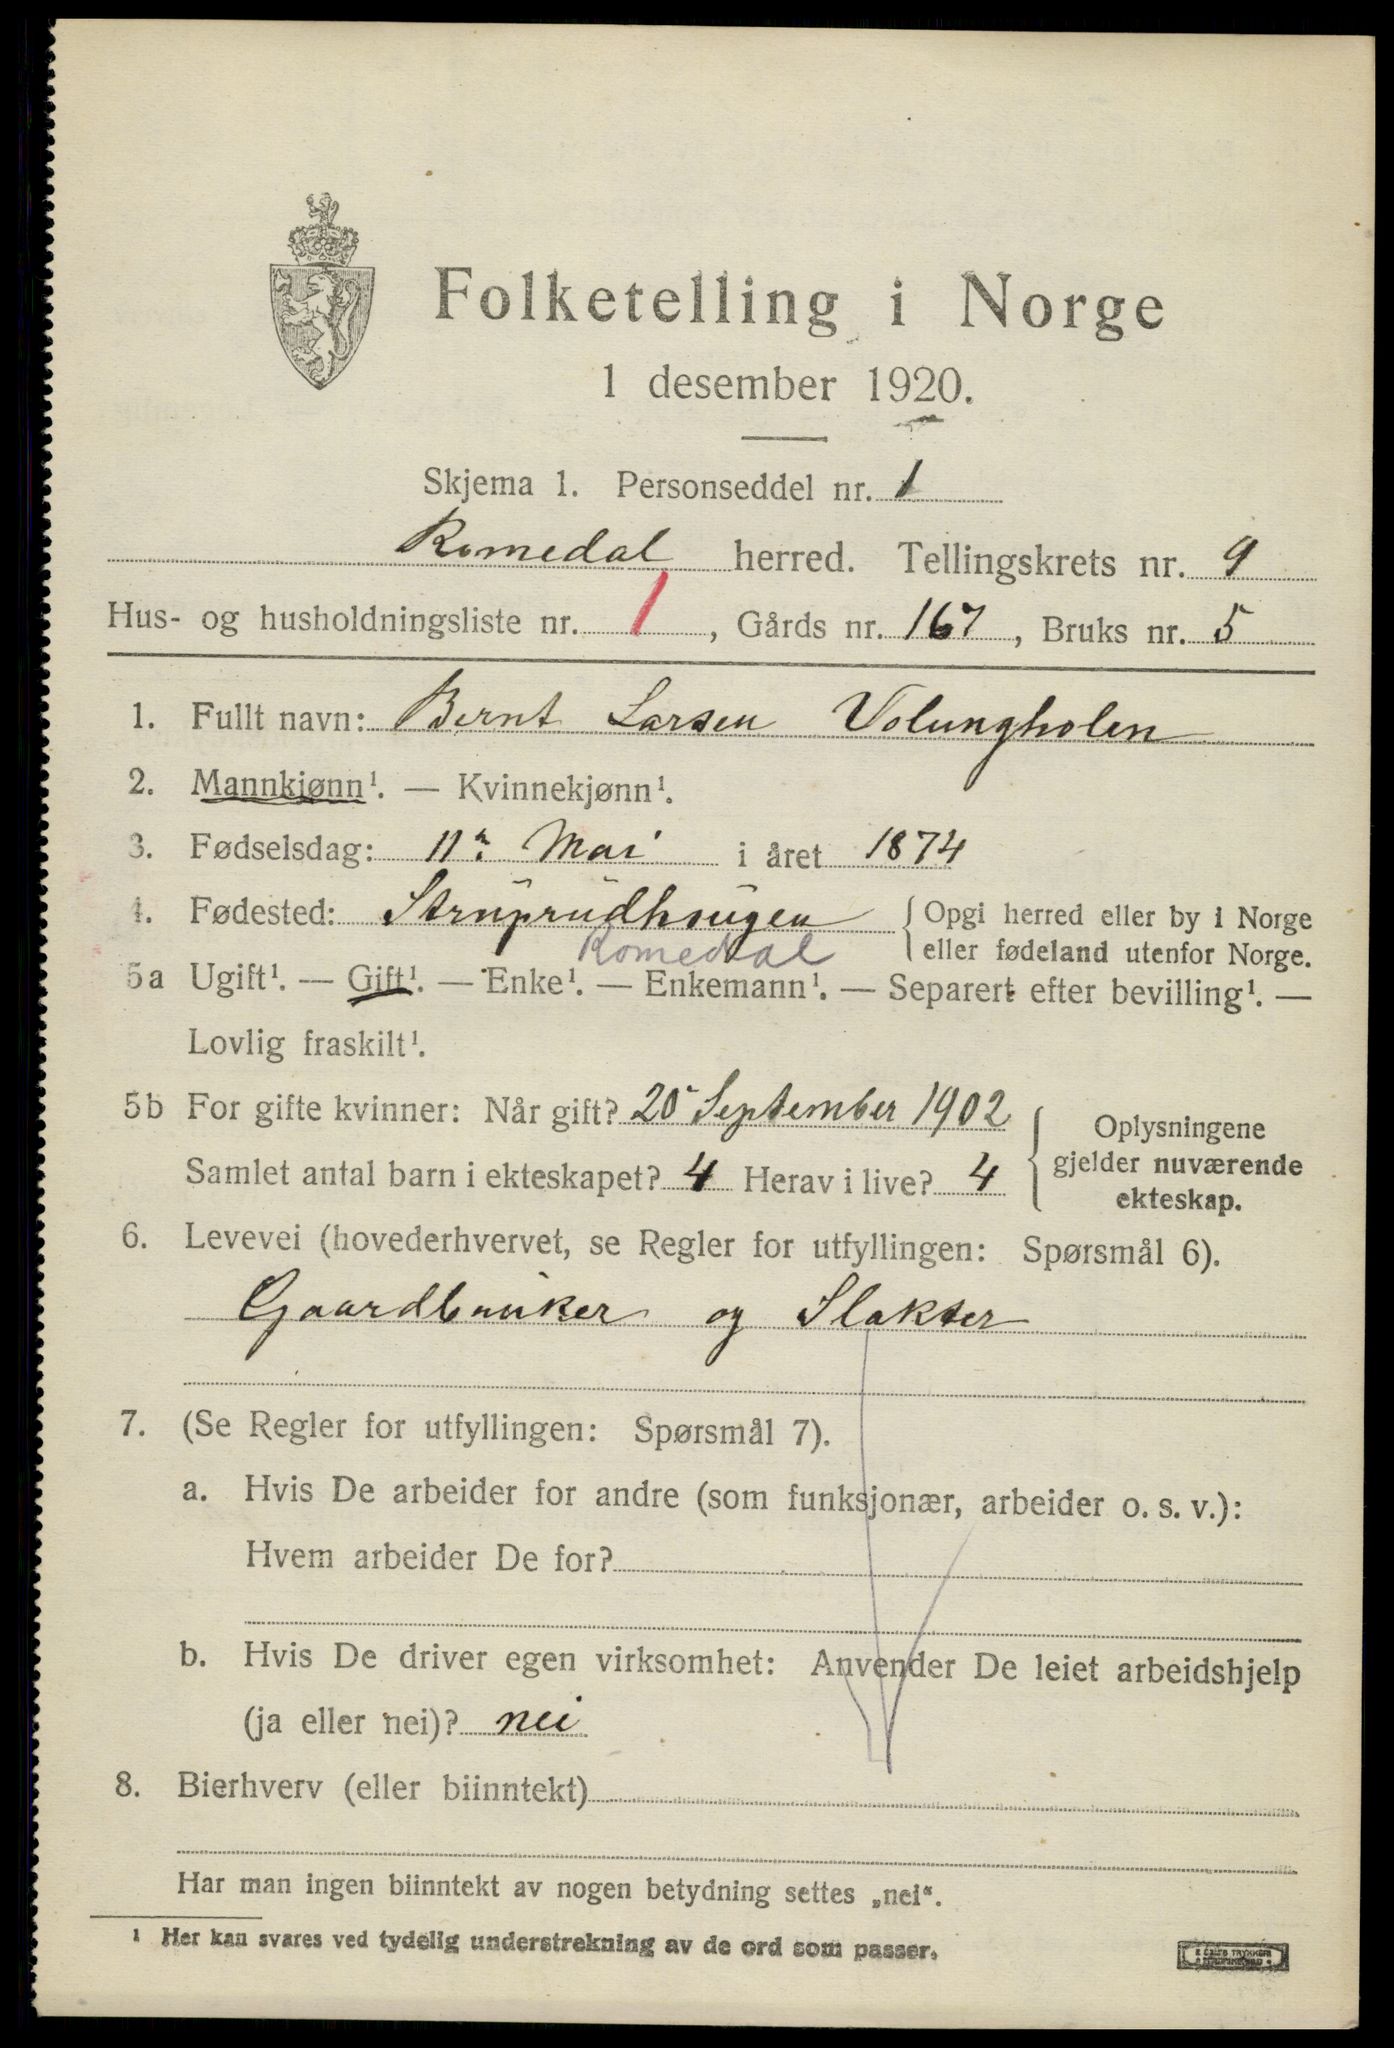 Folketelling i Norge
1 desember 1920.
Skjema 1. Personseddel nr. 1
Romedal herred. Tellingskrets nr. 9
Hus- og husholdningsliste nr. 1, Gårds nr. 167, Bruks nr. 5
1. Fullt navn: Bernt Larsen Volungholen
2. Mannkjønn¹. — Kvinnekjønn¹.
3. Fødselsdag: 11te Mai i året 1874
4. Fødested: Struprudhaugen { Opgi herred eller by i Norge
Romedal eller fødeland utenfor Norge.
5a Ugift¹. — Gift¹. — Enke¹. — Enkemann¹. — Separert efter bevilling¹. —
Lovlig fraskilt¹.
5b For gifte kvinner: Når gift? 20 September 1902 { Oplysningene
gjelder nuværende
Samlet antal barn i ekteskapet? 4 Herav i live? 4
ekteskap.
6. Levevei (hovederhvervet, se Regler for utfyllingen: Spørsmål 6).
Gaardbruker og Slakter
7. (Se Regler for utfyllingen: Spørsmål 7).
a. Hvis De arbeider for andre (som funksjonær, arbeider o. s. v.):
Hvem arbeider De for?
b. Hvis De driver egen virksomhet: Anvender De leiet arbeidshjelp
(ja eller nei)? nei
8. Bierhverv (eller biinntekt)
Har man ingen biinntekt av nogen betydning settes „nei“.
¹ Her kan svares ved tydelig understrekning av de ord som passer.